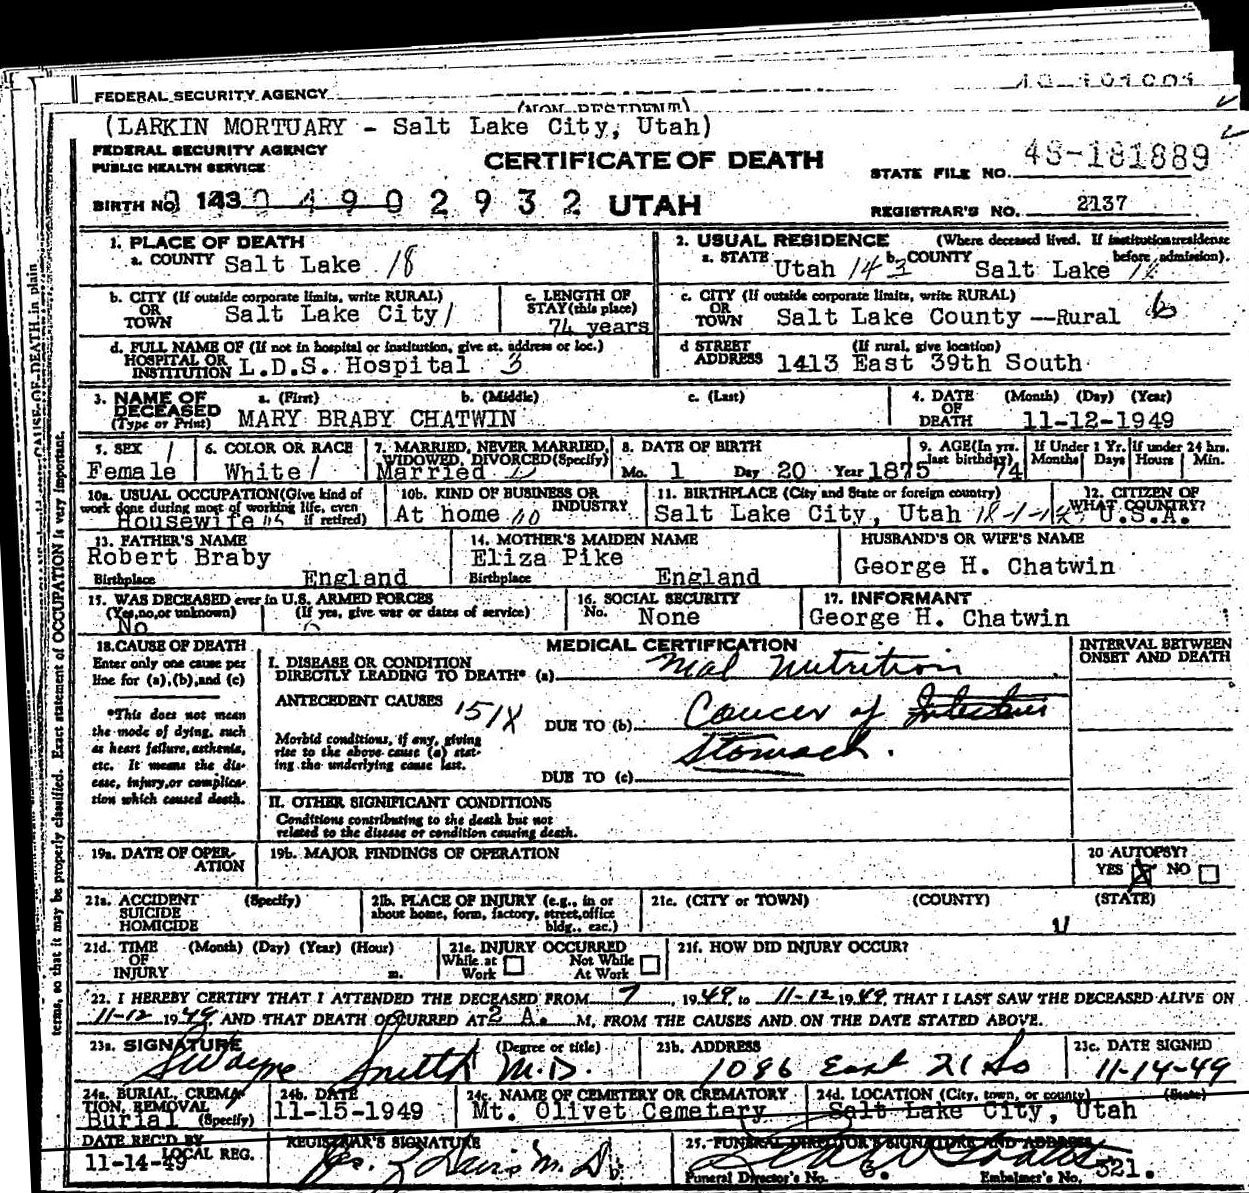 FEDERAL SECURITY AGENCY
(NON RESIDENT)
(LARKIN MORTUARY - Salt Lake City, Utah)
FEDERAL SECURITY AGENCY
PUBLIC HEALTH SERVICE
CERTIFICATE OF DEATH
STATE FILE NO. 48-181889
BIRTH NO. 143 0 4 9 0 2 9 3 2 UTAH
REGISTRAR'S NO. 2137
1. PLACE OF DEATH
a. COUNTY Salt Lake 18
2. USUAL RESIDENCE (Where deceased lived. If institution: residence before admission).
a. STATE Utah 143 b. COUNTY Salt Lake
b. CITY (If outside corporate limits, write RURAL)
OR
TOWN Salt Lake City
c. LENGTH OF
STAY (this place)
74 years
c. CITY (If outside corporate limits, write RURAL)
OR
TOWN Salt Lake County --Rural 6
d. FULL NAME OF (If not in hospital or institution, give st. address or loc.)
HOSPITAL OR
INSTITUTION L.D.S. Hospital 3
d STREET (If rural, give location)
ADDRESS 1413 East 39th South
3. NAME OF
DECEASED
(Type or Print)
a. (First) b. (Middle) c. (Last)
MARY BRABY CHATWIN
4. DATE (Month) (Day) (Year)
OF
DEATH 11-12-1949
5. SEX
Female
6. COLOR OR RACE
White
7. MARRIED, NEVER MARRIED,
WIDOWED, DIVORCED (Specify)
Married
8. DATE OF BIRTH
Mo. 1 Day 20 Year 1875
9. AGE (In yrs.
last birthday)
74
If Under 1 Yr.
Months Days
If under 24 hrs.
Hours Min.
10a. USUAL OCCUPATION (Give kind of
work done during most of working life, even
if retired)
Housewife
10b. KIND OF BUSINESS OR
INDUSTRY
At home
11. BIRTHPLACE (City and State or foreign country)
Salt Lake City, Utah
12. CITIZEN OF
WHAT COUNTRY?
U.S.A.
13. FATHER'S NAME
Robert Braby
Birthplace England
14. MOTHER'S MAIDEN NAME
Eliza Pike
Birthplace England
HUSBAND'S OR WIFE'S NAME
George H. Chatwin
15. WAS DECEASED ever in U.S. ARMED FORCES
(Yes, no, or unknown) (If yes, give war or dates of service)
No
16. SOCIAL SECURITY
No. None
17. INFORMANT
George H. Chatwin
18. CAUSE OF DEATH
Enter only one cause per
line for (a), (b), and (c)
*This does not mean
the mode of dying, such
as heart failure, asthenia,
etc. It means the dis-
ease, injury, or complica-
tion which caused death.
MEDICAL CERTIFICATION
INTERVAL BETWEEN
ONSET AND DEATH
I. DISEASE OR CONDITION
DIRECTLY LEADING TO DEATH* (a) Mal Nutrition
ANTECEDENT CAUSES 151X
Morbid conditions, if any, giving
rise to the above cause (a) stat-
ing the underlying cause last.
DUE TO (b) Cancer of Intestines
Stomach.
DUE TO (c)
II. OTHER SIGNIFICANT CONDITIONS
Conditions contributing to the death but not
related to the disease or condition causing death.
19a. DATE OF OPER-
ATION
19b. MAJOR FINDINGS OF OPERATION
20 AUTOPSY?
YES X NO
21a. ACCIDENT (Specify)
SUICIDE
HOMICIDE
21b. PLACE OF INJURY (e.g., in or
about home, form, factory, street, office
bldg., etc.)
21c. (CITY or TOWN) (COUNTY) (STATE)
21d. TIME (Month) (Day) (Year) (Hour)
OF
INJURY m.
21e. INJURY OCCURRED
While at Work Not While At Work
21f. HOW DID INJURY OCCUR?
22. I HEREBY CERTIFY THAT I ATTENDED THE DECEASED FROM 7, 1949, to 11-12 1949, THAT I LAST SAW THE DECEASED ALIVE ON
11-12 1949, AND THAT DEATH OCCURRED AT 2 A. M, FROM THE CAUSES AND ON THE DATE STATED ABOVE.
23a. SIGNATURE (Degree or title)
S Wayne Smith M.D.
23b. ADDRESS
1086 East 21 So
23c. DATE SIGNED
11-14-49
24a. BURIAL, CREMA-
TION, REMOVAL
Burial (Specify)
24b. DATE
11-15-1949
24c. NAME OF CEMETERY OR CREMATORY
Mt. Olivet Cemetery
24d. LOCATION (City, town, or county) (State)
Salt Lake City, Utah
DATE REC'D BY
LOCAL REG.
11-14-49
REGISTRAR'S SIGNATURE
25. FUNERAL DIRECTOR'S SIGNATURE AND ADDRESS
Funeral Director's No. 6. Embalmer's No. 321.
CAUSE OF DEATH in plain
terms, so that it may be properly classified. Exact statement of OCCUPATION is very important.